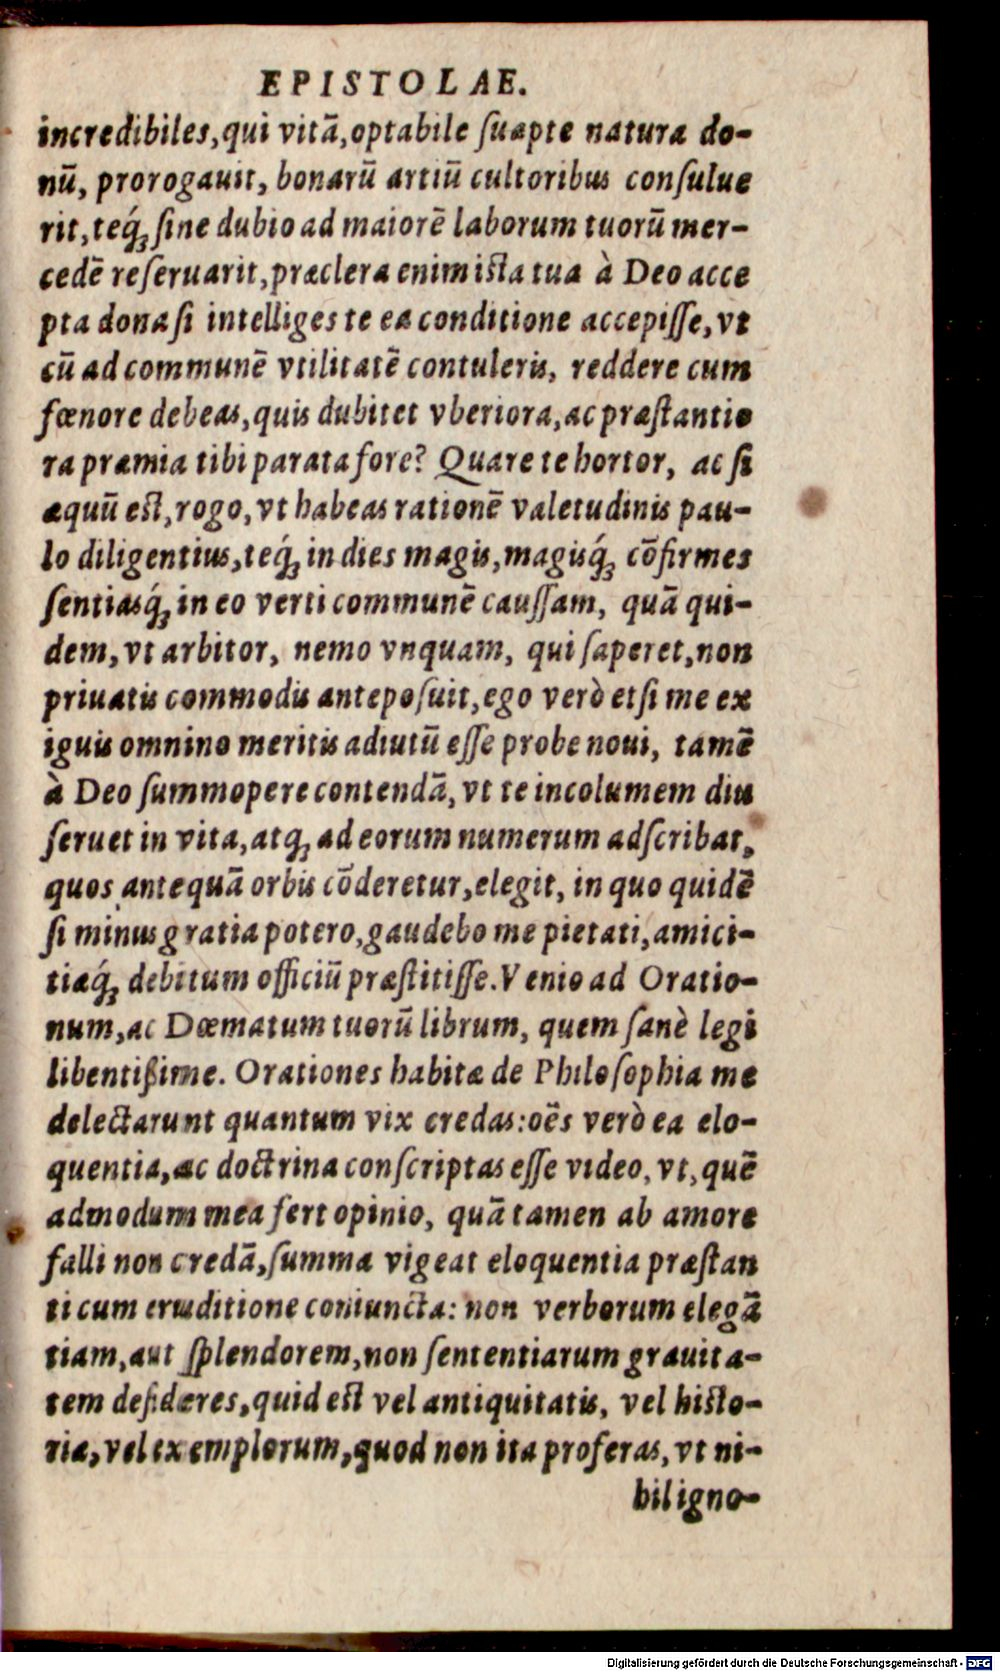 EPISTOLAE.
incredibiles,qui vitā,optabile ſuapte natura do-
nū, prorogauit, bonarū artiū cultoribus conſulue
rit,teq́; ſine dubio ad maiorē laborum tuorū mer-
cedē reſeruarit,præclera enim iſta tua à Deo acce
pta dona ſi intelliges te ea conditione accepiſſe,vt
cū ad communē vtilitatē contuleris, reddere cum
fœnore debeas,quis dubitet vberiora,ac præſtantio
ra præmia tibi parata fore? Quare te hortor, ac ſi
æquū eſt,rogo,vt habeas rationē valetudinis pau-
lo diligentius,teq́; in dies magis,magisq́; cōfirmes
ſentiasq́; in eo verti communē cauſſam, quā qui-
dem,vt arbitor, nemo vnquam, qui ſaperet,non
priuatis commodis antepoſuit,ego verò etſi me ex
iguis omnino meritis adiutū eſſe probe noui, tamē
à Deo ſummopere contendā,vt te incolumem diu
ſeruet in vita,atq; ad eorum numerum adſcribat,
quos antequā orbis cōderetur,elegit, in quo quidē
ſi minus gratia potero,gaudebo me pietati,amici-
tiæq́; debitum officiū præſtitiſſe.Venio ad Oratio-
num,ac Dœmatum tuorū librum, quem ſanè legi
libentißime. Orationes habitæ de Philoſophia me
delectarunt quantum vix credas:oēs verò ea elo-
quentia,ac doctrina conſcriptas eſſe video,vt,quē
admodum mea fert opinio, quā tamen ab amore
falli non credā,ſumma vigeat eloquentia præſtan
ti cum eruditione coniuncta: non verborum elegā
tiam,aut ſplendorem,non ſententiarum grauita-
tem deſideres,quid eſt vel antiquitatis, vel hiſto-
riæ,vel exemplorum,quod non ita proferas,vt ni-
hil igno-
Digitalisierung gefördert durch die Deutsche Forschungsgemeinschaft - DFG